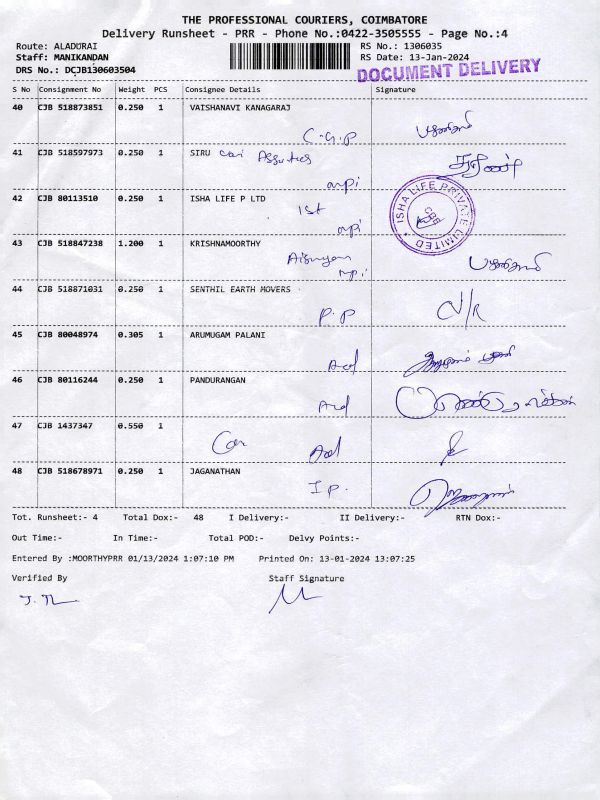 THE PROFESSIONAL COURIERS, COIMBATORE
Delivery Runsheet - PRR - Phone No.:0422-3505555 - Page No.:4
Route: ALADURAI RS No.: 1306035
Staff: MANIKANDAN RS Date: 13-Jan-2024
DRS No.: DCJB130603504 DOCUMENT DELIVERY
S No Consignment No Weight PCS Consignee Details Signature
40 CJB 518873851 0.250 1 VAISHANAVI KANAGARAJ
C.G.P
41 CJB 518597973 0.250 1 SIRU
mpi
42 CJB 80113510 0.250 1 ISHA LIFE P LTD ISHA LIFE PRIVATE LIMITED CBE
1st
mpi
43 CJB 518847238 1.200 1 KRISHNAMOORTHY
mpi
44 CJB 518871031 0.250 1 SENTHIL EARTH MOVERS
P.P
45 CJB 80048974 0.305 1 ARUMUGAM PALANI
46 CJB 80116244 0.250 1 PANDURANGAN
47 CJB 1437347 0.550 1
48 CJB 518678971 0.250 1 JAGANATHAN
I P.
Tot. Runsheet:- 4 Total Dox:- 48 I Delivery:- II Delivery:- RTN Dox:-
Out Time:- In Time:- Total POD:- Delvy Points:-
Entered By :MOORTHYPRR 01/13/2024 1:07:10 PM Printed On: 13-01-2024 13:07:25
Verified By Staff Signature